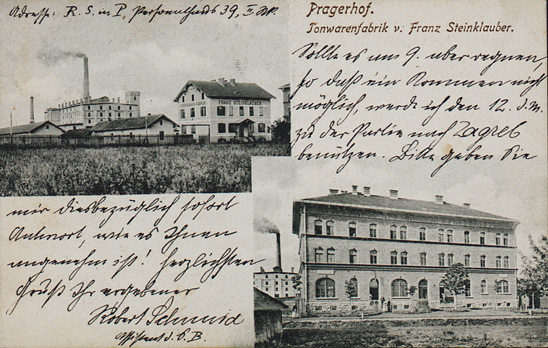 Adresse: R. S. in P., Personalhaus 39, II. Stk.
Pragerhof.
Tonwarenfabrik v. Franz Steinklauber.
FRANZ STEINKLAUBER
Sollte es am 9. aber regnen,
so daß ein Kommen nicht
möglich, werde ich den 12. d. M.
zu der Partie nach Zagreb
benützen. Bitte geben Sie
mir diesbezüglich sofort
Antwort, wie es Ihnen
angenehm ist! Herzlichsten
Gruß Ihr ergebener
Robert Schmid
d. S. B.